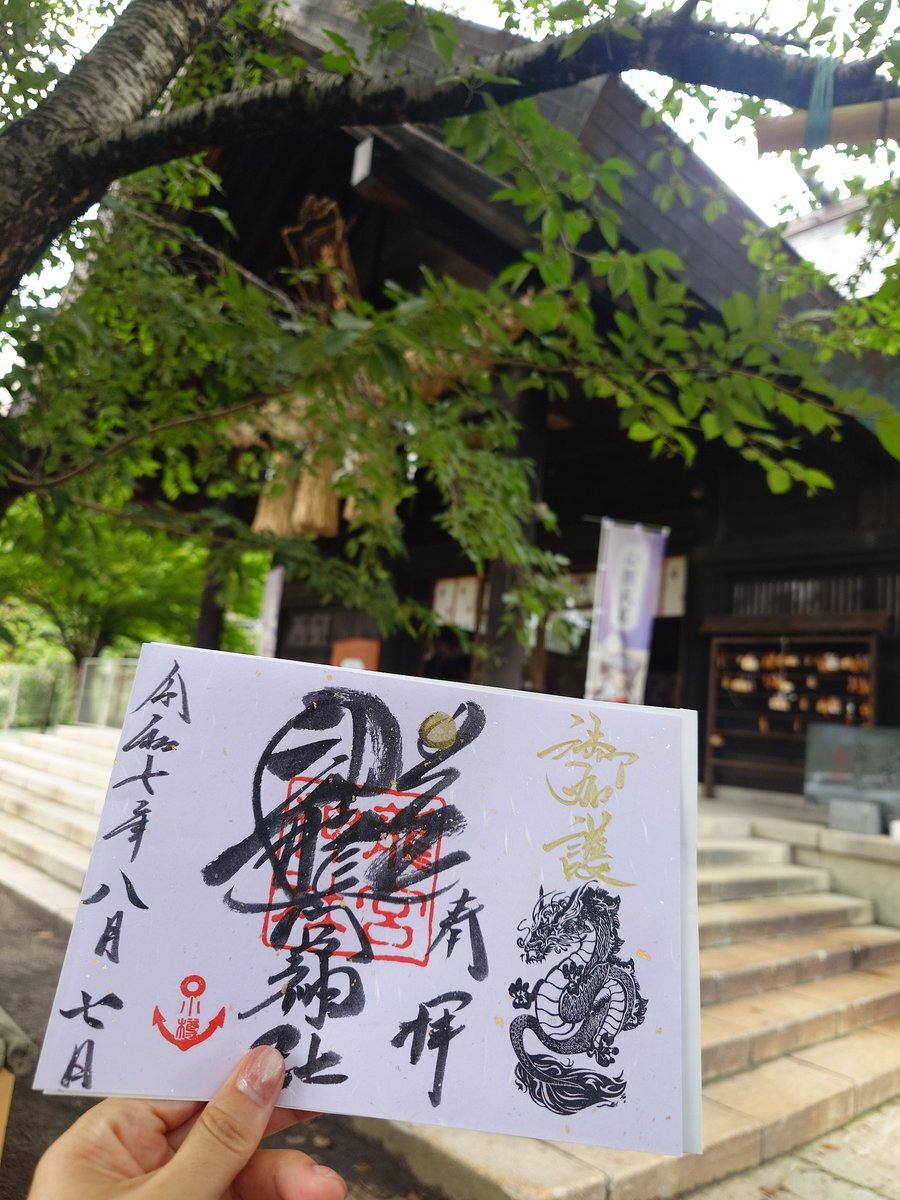 御加護
奉拝
龍宮神社
龍宮
神社
小樽
令和七年
八月
七日